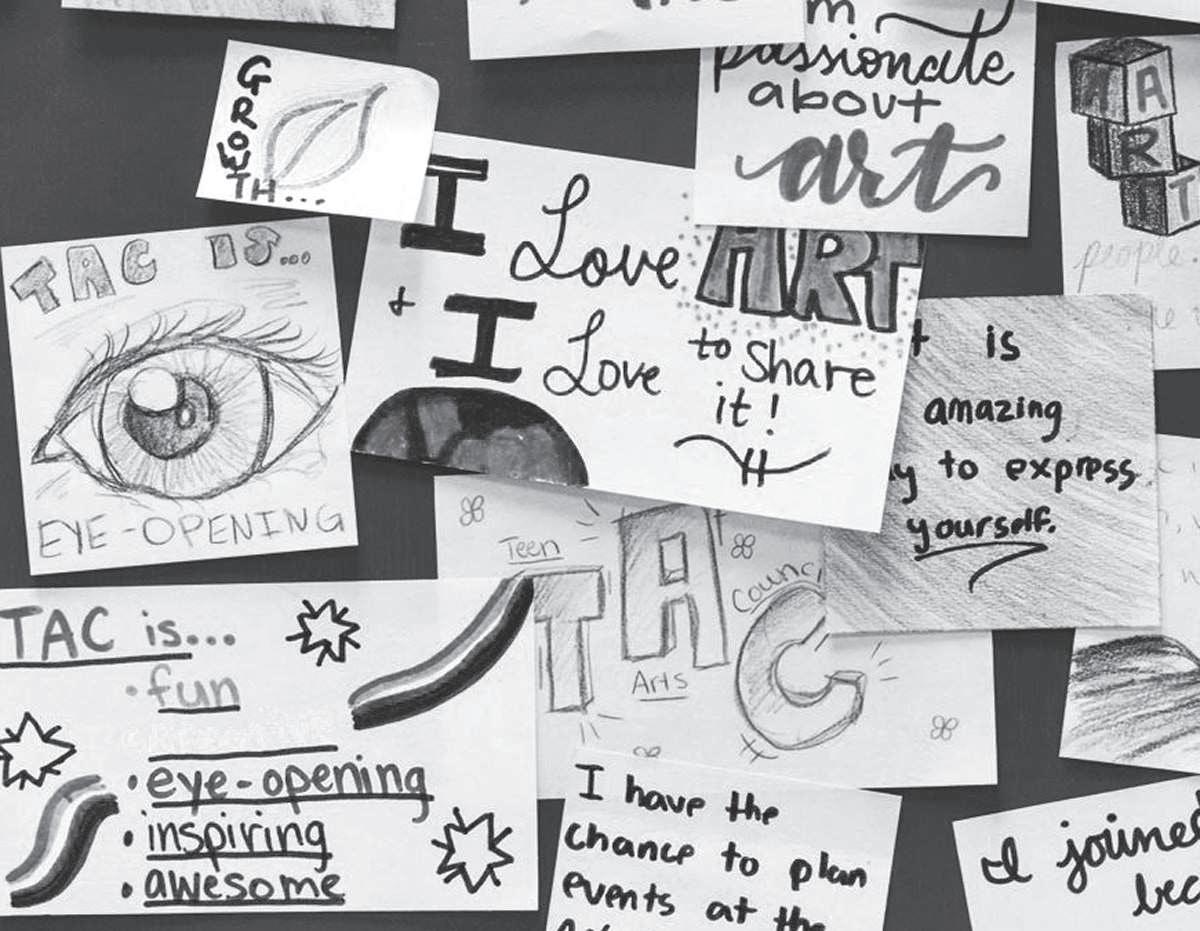 m
passionate
about
art
GROWTH...
ART
people.
TAC IS...
EYE-OPENING
I Love ART
+ I Love to Share
it!
is
amazing
to express
yourself.
Teen
TAC
Arts
TAC is...
• fun
• eye-opening
• inspiring
• awesome
I have the
chance to plan
events at the
I joined